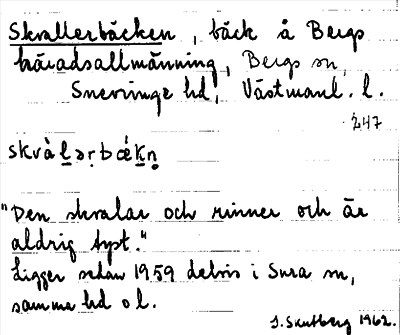 Skrallerbäcken, bäck å Bergs
häradsallmänning, Bergs sn,
Snevringe hd, Västmanl. l.
247
skvàlərbǽkn̥
"Den skralar och rinner och är
aldrig tyst."
Ligger sedan 1959 delvis i Sura sn,
samma hd o l.
J. Skutberg 1962.